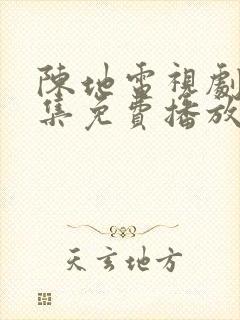 陳地雷視劇
集免費播放
天玄地方